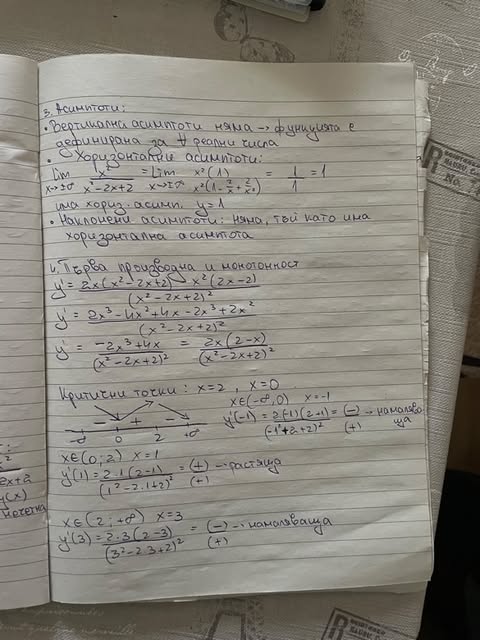 3. Асимптоти:
• Вертикални асимптоти няма → функцията е
дефинирана за ∀ реални числа
• Хоризонтални асимптоти:
lim x→±∞ x²/(x²-2x+2) = lim x→±∞ x²/(x²(1-2/x+2/x²)) = 1/1 = 1
има хориз. асимп. y=1
• Наклонени асимптоти: няма, тъй като има
хоризонтална асимптота
4. Първа производна и монотонност
y' = (2x(x²-2x+2) - x²(2x-2))/(x²-2x+2)²
y' = (2x³-4x²+4x-2x³+2x²)/(x²-2x+2)²
y' = (-2x³+4x)/(x²-2x+2)² = 2x(2-x)/(x²-2x+2)²
Критични точки: x=2, x=0
x∈(-∞,0) x=-1
- + -
-∞ 0 2 +∞
y'(-1) = 2(-1)(2+1)/(-1²+2+2)² = (-)/(+) → намалява
ща
x∈(0;2) x=1
y'(1) = 2.1(2-1)/(1²-2.1+2)² = (+)/(+) → растяща
x∈(2;+∞) x=3
y'(3) = 2.3(2-3)/(3²-2.3+2)² = (-)/(+) → намаляваща
2x+2
y(x)
нечетна